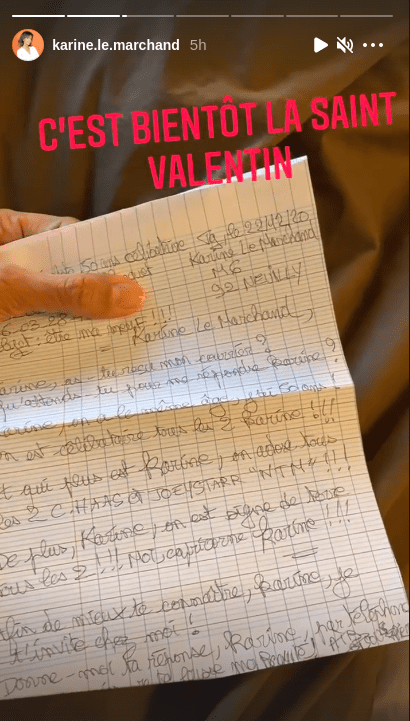 karine.le.marchand 5h
C'EST BIENTÔT LA SAINT
VALENTIN
50 ans célibataire le 22/12/20,
Karine Le Marchand
M6
92 NEUILLY
: être ma meuf!!!
Karine Le Marchand,
Karine, as-tu reçu mon courrier?
qu'attends-tu pour me répondre Karine?
on a le même âge, j'ai 50 ans!
on est célibataire tous les 2 Karine!!!
qui plus est Karine, on adore tous
les 2 C. HAAS & JOEYSTARR "NTM"!!!
De plus, Karine, on est signe de terre
tous les 2!!! Moi, capricorne Karine!!!
de mieux te connaître, Karine, je
t'invite chez moi!
Donne-moi ta réponse, Karine, par téléphone